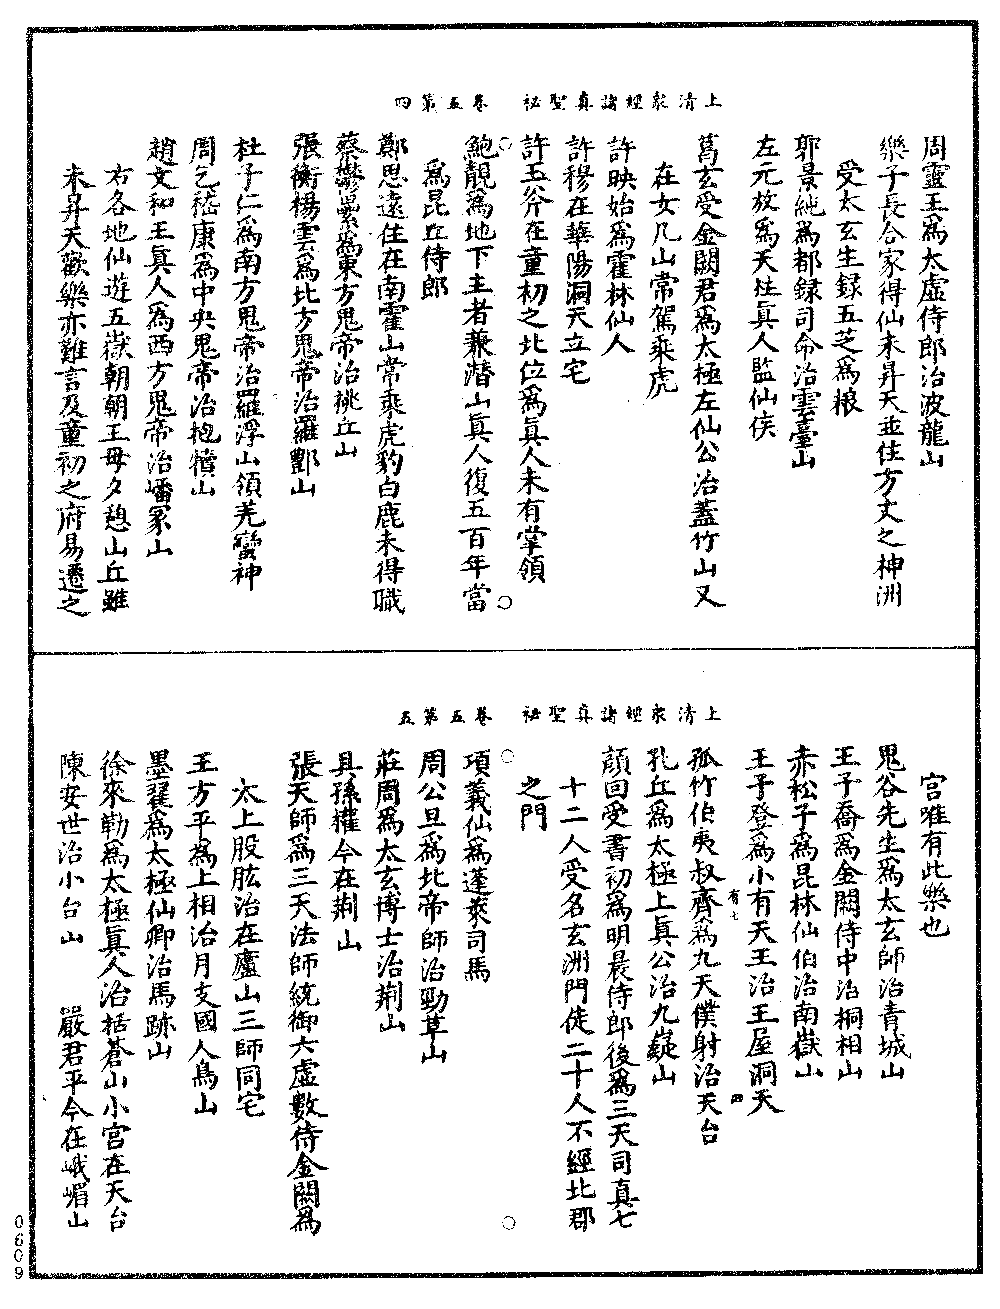 上清衆經諸真聖祕　卷五第四
周靈王爲太虛侍郎治波龍山
樂子長合家得仙未昇天並住方丈之神洲
受太玄生録五芝爲粮
郭景純爲都録司命治雲臺山
左元放爲天柱真人監仙侯
葛玄受金闕君爲太極左仙公治蓋竹山又
在女几山常駕乘虎
許映始爲霍林仙人
許穆在華陽洞天立宅
許玉斧在童初之北位爲真人未有掌領
鮑靚爲地下主者兼潛山真人復五百年當
爲昆丘侍郎
鄭思遠住在南霍山常乘虎豹白鹿未得職
蔡鬱壘爲東方鬼帝治桃丘山
張衡楊雲爲北方鬼帝治羅酆山
杜子仁爲南方鬼帝治羅浮山領羌蠻神
周乞嵇康爲中央鬼帝治抱犢山
趙文和王真人爲西方鬼帝治嶓冢山
右各地仙遊五嶽朝朝王母夕憩山丘雖
未昇天歡樂亦難言及童初之府易遷之
上清衆經諸真聖祕　卷五第五
宮唯有此樂也
鬼谷先生爲太玄師治青城山
王子喬爲金闕侍中治桐柏山
赤松子爲昆林仙伯治南嶽山
王子登爲小有天王治王屋洞天
有七　四
孤竹伯夷叔齊爲九天僕射治天台
孔丘爲太極上真公治九嶷山
顔回受書初爲明晨侍郎後爲三天司真七
十二人受名玄洲門徒三十人不經北郡
之門
項羲仙爲蓬萊司馬
周公旦爲北帝師治勁草山
莊周爲太玄博士治荆山
具孫權今在荆山
張天師爲三天法師統御六虛數侍金闕爲
太上股肱治在廬山三師同宅
王方平爲上相治月支國人鳥山
墨翟爲太極仙卿治馬跡山
徐來勒爲太極真人治括蒼山小宮在天台
陳安世治小台山　嚴君平今在峨嵋山
0609